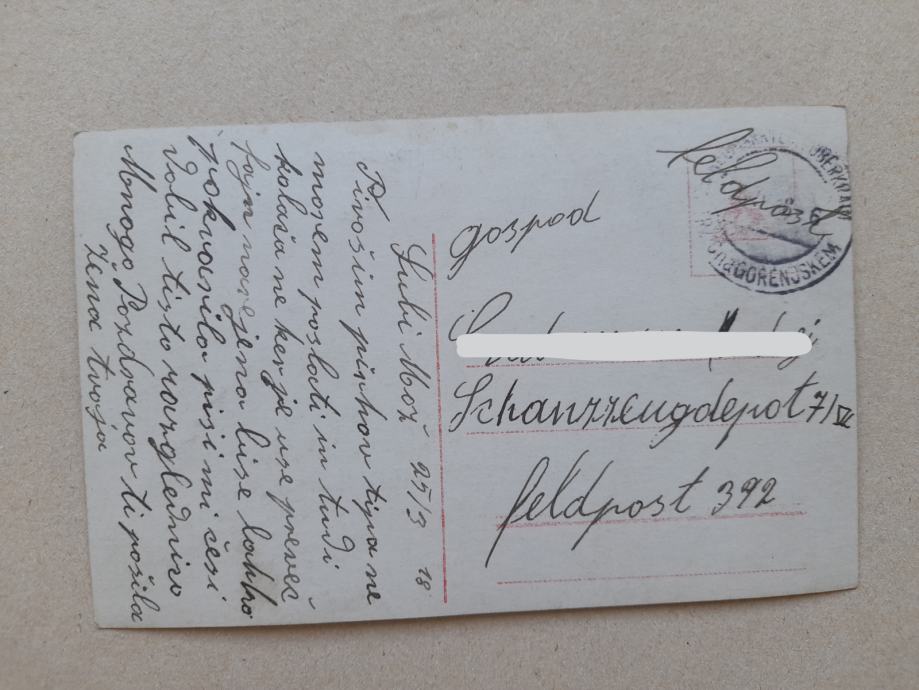 Lubi Mož 25/3 18
Pirošim pirhov ti pa ne
morem poslati in tudi
kolača ne ker je vse preveč
fajn narejeno bi se lahko
pokvarilo piši mi česi
dobil tisto razglednico
Mnogo Pozdravov ti pošila
žena tvoja
feldpost
OBERKRAIN
naGORENJSKEM
gospod
Schanzzeugdepot 7/VI
feldpost 392